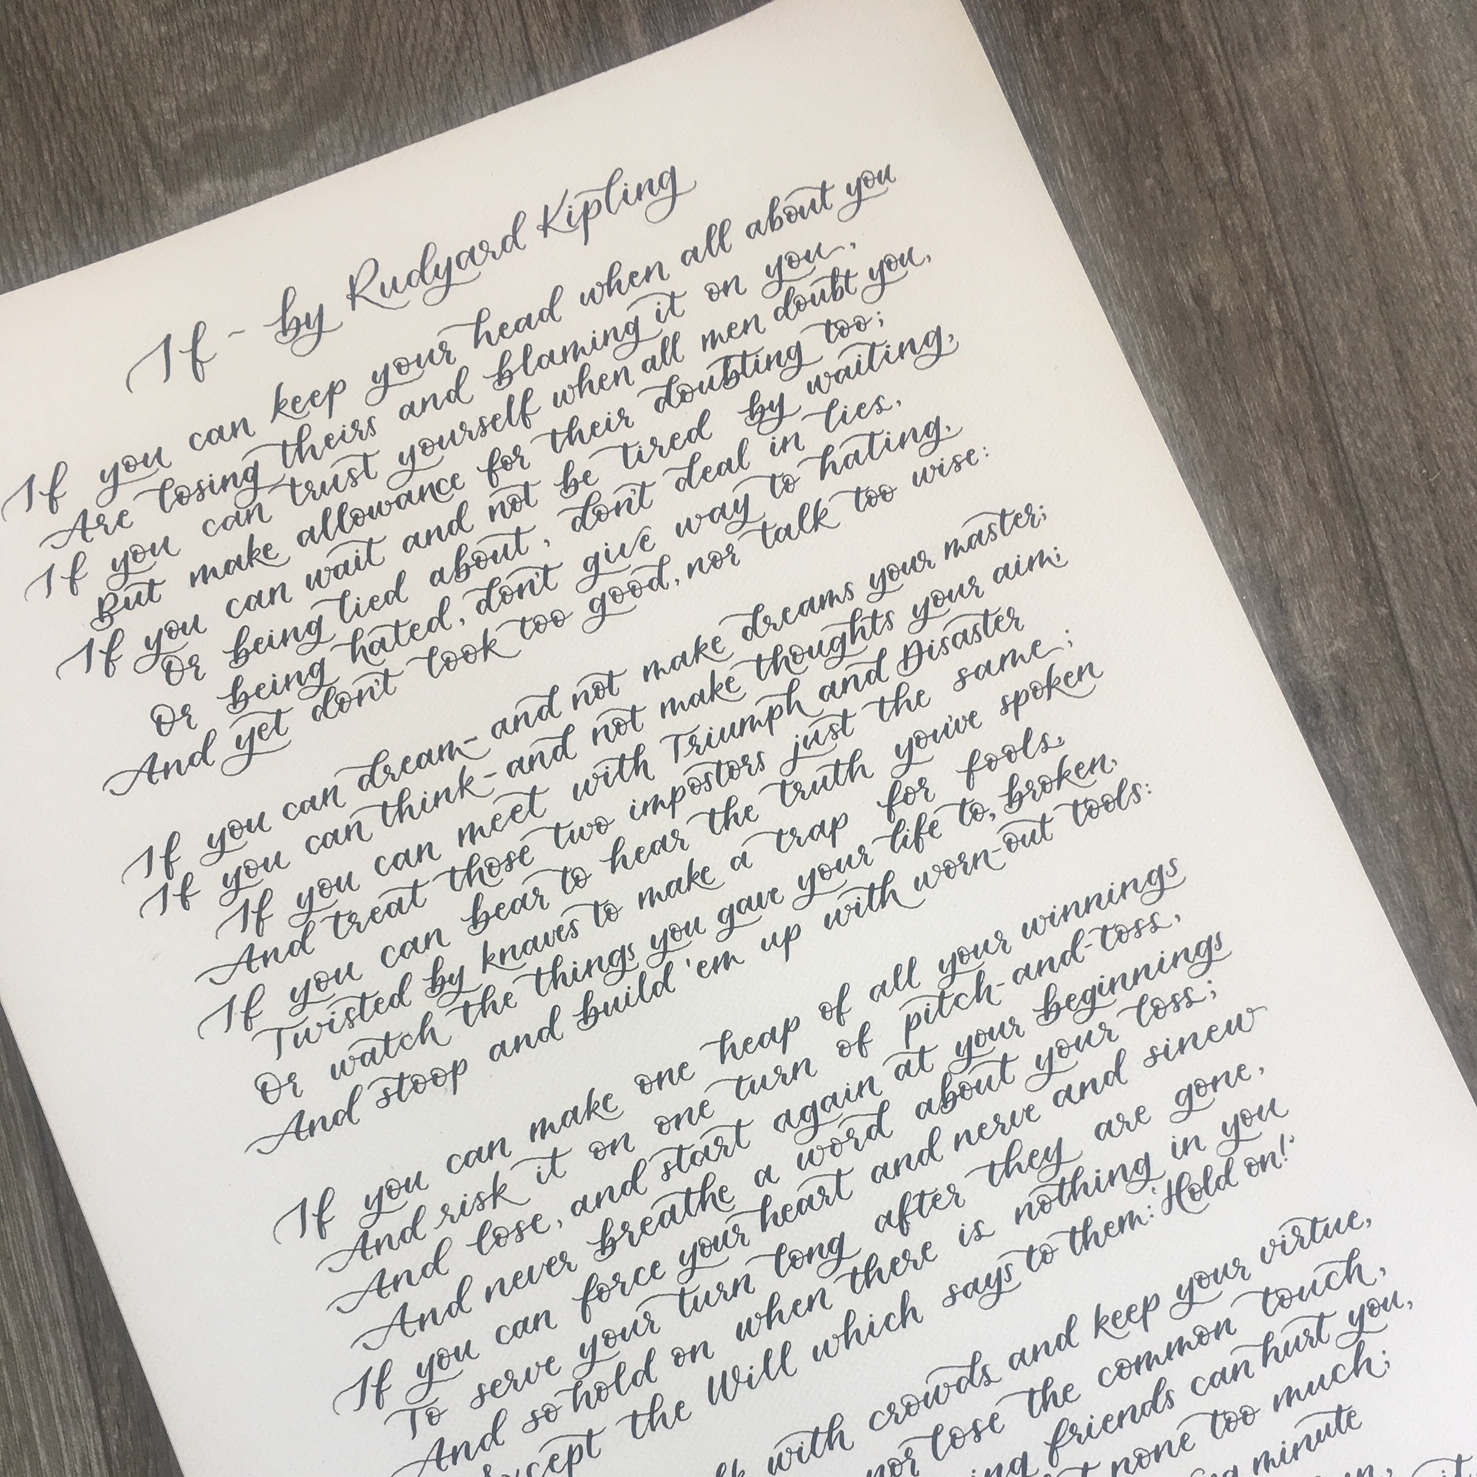 If - by Rudyard Kipling
If you can keep your head when all about you
Are losing theirs and blaming it on you,
If you can trust yourself when all men doubt you,
But make allowance for their doubting too;
If you can wait and not be tired by waiting,
Or being lied about, don't deal in lies,
Or being hated, don't give way to hating,
And yet don't look too good, nor talk too wise:
If you can dream- and not make dreams your master;
If you can think-and not make thoughts your aim;
If you can meet with Triumph and Disaster
And treat those two impostors just the same;
If you can bear to hear the truth you've spoken
Twisted by knaves to make a trap for fools,
Or watch the things you gave your life to, broken,
And stoop and build 'em up with worn-out tools:
If you can make one heap of all your winnings
And risk it on one turn of pitch-and-toss,
And lose, and start again at your beginnings
And never breathe a word about your loss;
If you can force your heart and nerve and sinew
To serve your turn long after they are gone,
And so hold on when there is nothing in you
the Will which says to them: 'Hold on!'
with crowds and keep your virtue,
nor lose the common touch,
friends can hurt you,
none too much;
minute